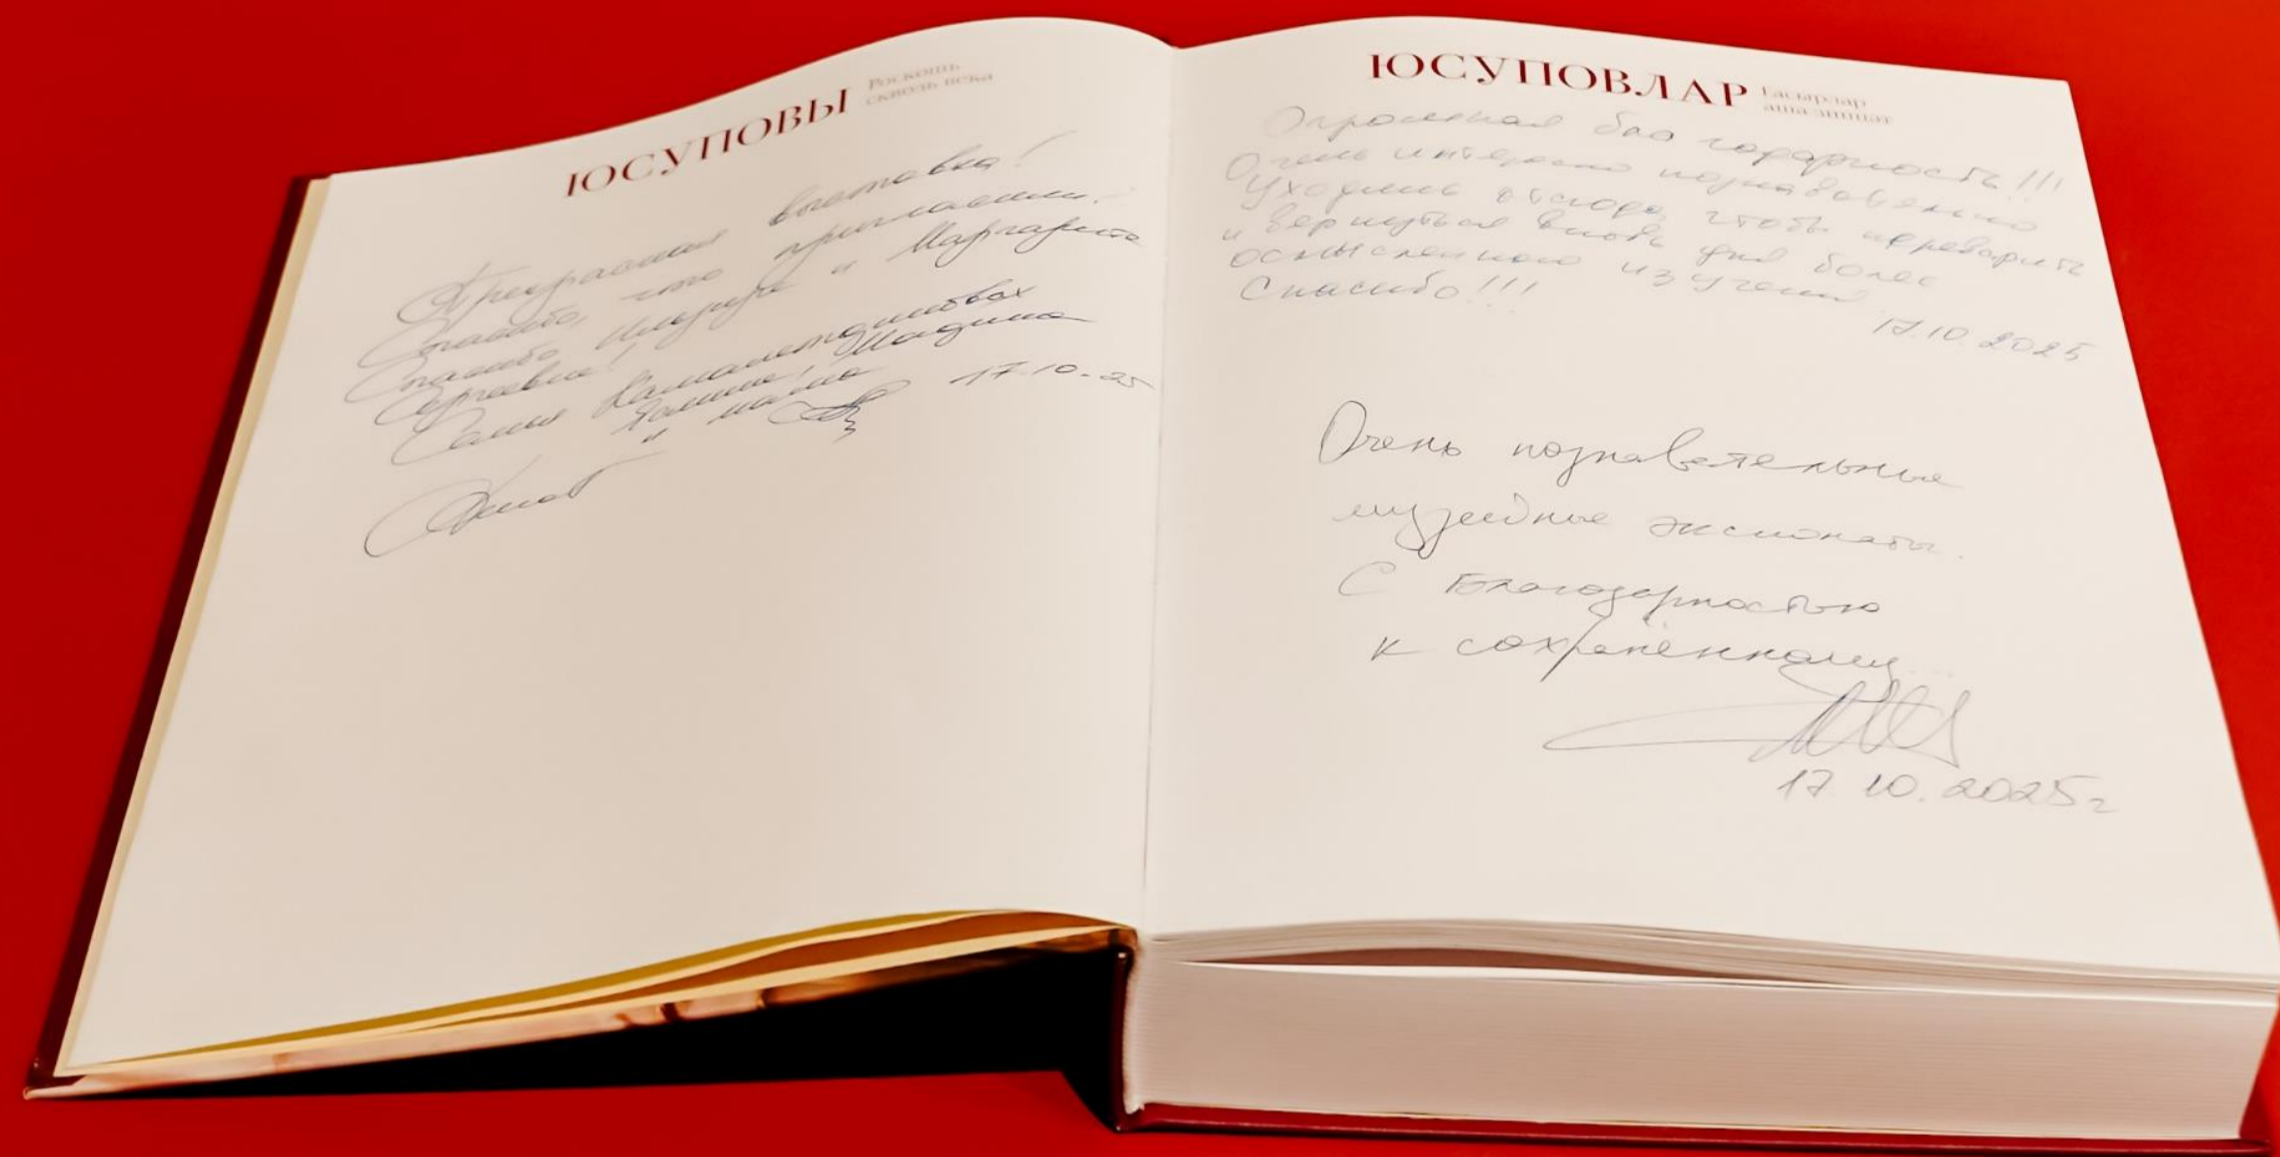 ЮСУПОВЫ Роскошь
сквозь века
Прекрасная выставка!
Спасибо, что пригласили.
Спасибо и Маргарита
Сергеевна!
Семья
и мама 17.10.25
ЮСУПОВЛАР Гасырлар
аша зиннәт
Огромная благодарность!!!
Очень интересно познавательно
Уходишь отсюда, чтобы переварить
и вернуться вновь для более
осмысленного изучения
Спасибо!!!
17.10.2025
Очень познавательные
музейные экспонаты.
С благодарностью
к сохранённому...
17.10.2025г